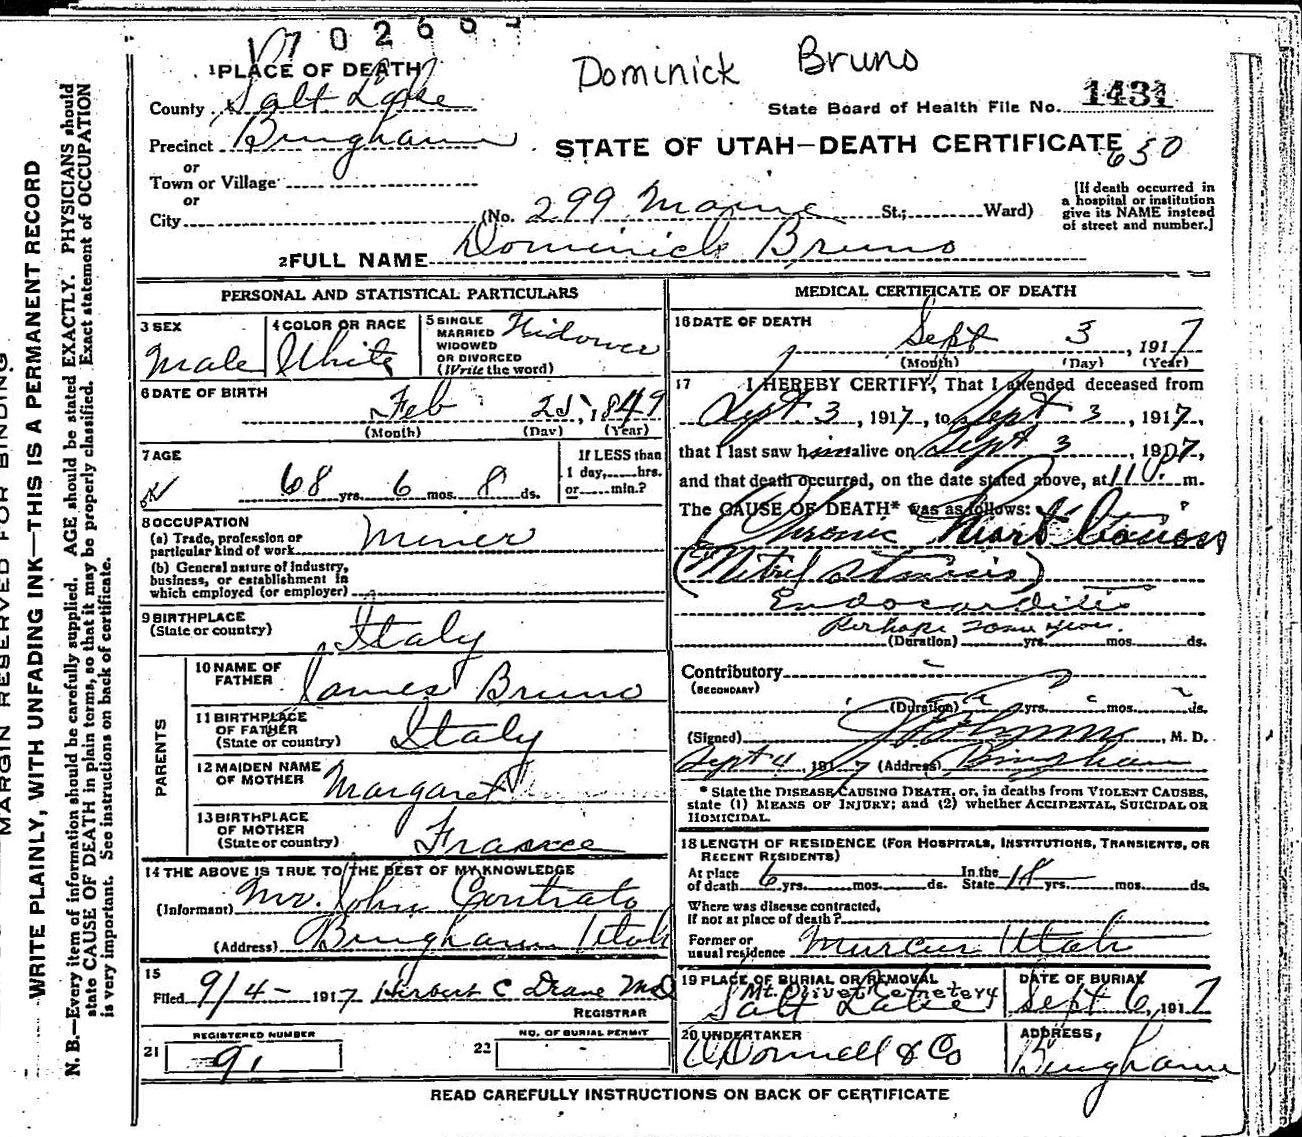 V 7 0 2 6 0
Dominick Bruno
1 PLACE OF DEATH
County Salt Lake
State Board of Health File No. 1431
Precinct Bingham
STATE OF UTAH—DEATH CERTIFICATE
650
or
Town or Village
or
City (No. 299 Maine St.; Ward)
[If death occurred in a hospital or institution give its NAME instead of street and number.]
2 FULL NAME Dominick Bruno
PERSONAL AND STATISTICAL PARTICULARS
3 SEX Male
4 COLOR OR RACE White
5 SINGLE MARRIED WIDOWED OR DIVORCED (Write the word) Widower
6 DATE OF BIRTH
Feb 25, 1849
(Month) (Day) (Year)
7 AGE
68 yrs. 6 mos. 8 ds.
If LESS than 1 day, hrs. or min.?
8 OCCUPATION
(a) Trade, profession or particular kind of work Miner
(b) General nature of industry, business, or establishment in which employed (or employer)
9 BIRTHPLACE (State or country) Italy
PARENTS
10 NAME OF FATHER James Bruno
11 BIRTHPLACE OF FATHER (State or country) Italy
12 MAIDEN NAME OF MOTHER Margaret
13 BIRTHPLACE OF MOTHER (State or country) France
14 THE ABOVE IS TRUE TO THE BEST OF MY KNOWLEDGE
(Informant) Mr. John Contrato
(Address) Bingham Utah
15
Filed 9/4- 1917 Herbert C Deane MD
REGISTRAR
21 REGISTERED NUMBER 91
22 NO. OF BURIAL PERMIT
MEDICAL CERTIFICATE OF DEATH
16 DATE OF DEATH
Sept 3, 1917
(Month) (Day) (Year)
17 I HEREBY CERTIFY, That I attended deceased from
Sept. 3, 1917, to Sept 3, 1917,
that I last saw him alive on Sept 3, 1907,
and that death occurred, on the date stated above, at 11 P. m.
The CAUSE OF DEATH* was as follows:
Chronic Heart
(Mitral Stenosis)
Endocarditis
Perhaps
(Duration) yrs. mos. ds.
Contributory
(SECONDARY)
(Duration) yrs. mos. ds.
(Signed) , M. D.
Sept 4, 1917 (Address) Bingham
* State the DISEASE CAUSING DEATH, or, in deaths from VIOLENT CAUSES, state (1) MEANS OF INJURY; and (2) whether ACCIDENTAL, SUICIDAL OR HOMICIDAL.
18 LENGTH OF RESIDENCE (FOR HOSPITALS, INSTITUTIONS, TRANSIENTS, OR RECENT RESIDENTS)
At place of death 6 yrs. mos. ds. In the State 18 yrs. mos. ds.
Where was disease contracted, if not at place of death?
Former or usual residence Mercur Utah
19 PLACE OF BURIAL OR REMOVAL
Mt. Olivet Cemetery
Salt Lake
DATE OF BURIAL
Sept 6, 1917
20 UNDERTAKER
O'Donnell & Co
ADDRESS,
Bingham
READ CAREFULLY INSTRUCTIONS ON BACK OF CERTIFICATE
MARGIN RESERVED FOR BINDING
WRITE PLAINLY, WITH UNFADING INK—THIS IS A PERMANENT RECORD
N. B.—Every item of information should be carefully supplied. AGE should be stated EXACTLY. PHYSICIANS should
state CAUSE OF DEATH in plain terms, so that it may be properly classified. Exact statement of OCCUPATION
is very important. See instructions on back of certificate.